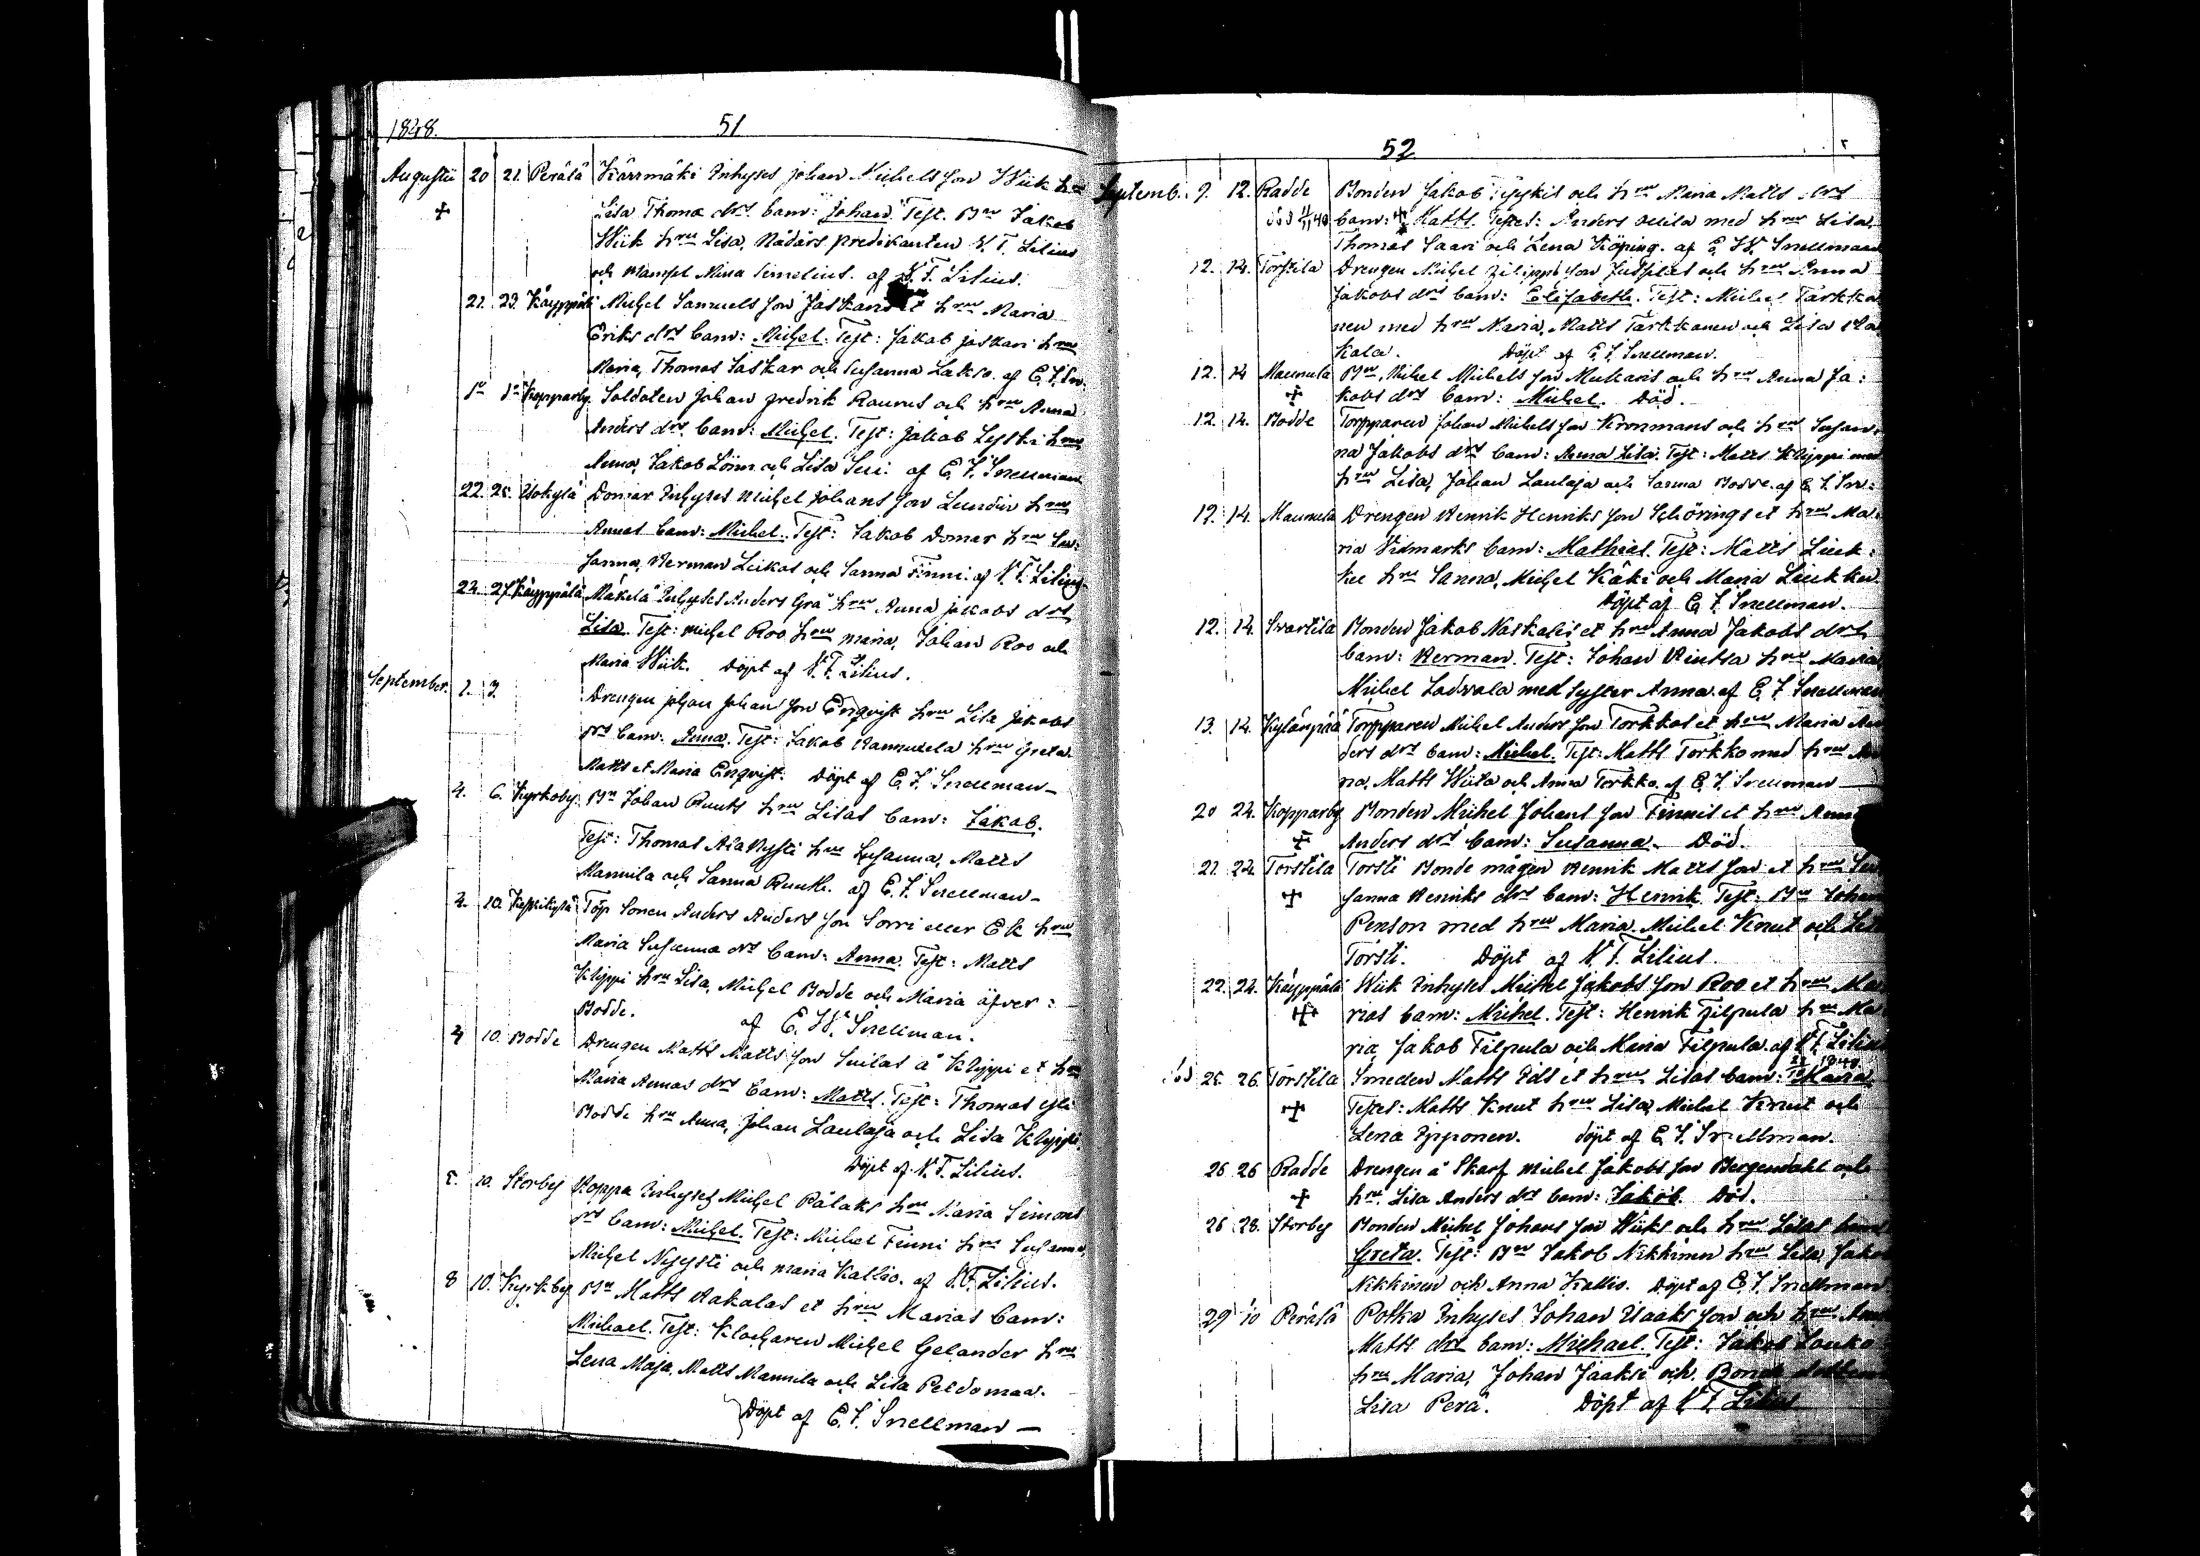 1848. 51
Augusti 20 21. Perälä Kärrmäki Inhyses Johan Michels son Wiik hru
Lisa Thomæ drs barn: Johan. Test. Bn Jakob
Wiik hru Lisa, Nådårs predikanten N. F. Lilius
och Mamsel Mina Simelius. af N. F. Lilius.
21. 23. Käyppälä Michel Samuels son Jaskaris et hru Maria
Eriks drs barn: Michel. Test: Jakob Jaskari hru
Maria, Thomas Jaskar och Susanna Lakso. af E. J. Sn.
Kopparby Soldaten Johan Fredrik Raumus och hru Anna
Anders drs barn: Michel. Test: Jakob hru
Anna, Jakob Lönn och Lisa af E. J. Snellman
22. 25. Isokylä Domar Inhyses Michel Johans son Lundin hru
Annas barn: Michel. Test: Jakob Domar hru Su:
sanna, Herman Leikas och Sanna Finni. af N. F. Lilius.
22. 27. Käyppälä Mäkelä Inhyses Anders Grå hru Anna Jakobs drs
Lisa. Test: Michel Roo hru Maria, Johan Roo och
Maria Wiik. Döpt af N. F. Lilius.
September. 1. 3. Drengen Johan Johans son Enqvist hru Lisa Jakobs
drs barn: Anna. Test: Jakob Hannuxela hru Greta.
Matts et Maria Enqvist. Döpt af E. J. Snellman
4. 6. Kyrkoby. Bn Johan Ruuths hru Lisas barn: Jakob.
Test: Thomas hru Susanna, Matts
Mannila och Sanna Ruuth. af E. J. Snellman
4. 10. Keskikylä Torp Sonen Anders Anders son Sorri eller Ek hru
Maria Susanna drs barn: Anna. Test: Matts
Klyppi hru Lisa, Michel Bodde och Maria öfver:
Bodde. af E. W. Snellman.
4 10. Bodde Drengen Matts Matts son Luilas å Klyppi et hru
Maria Annas drs barn: Matts. Test: Thomas Yli
Bodde hru Anna, Johan Laulaja och Lisa Klyppi.
Döpt af N. F. Lilius.
5. 10. Storby Koppa Inhyses Michel Pålaks hru Maria Simons
drs barn: Michel. Test: Michel Finni hru Susanna,
Michel Nyysti och Maria Kallio. af N. F. Lilius.
8 10. Kyrkby Bn Matts Hakalas et hru Marias barn:
Michael. Test: Klockaren Michel Gelander hru
Lena Maja, Matts Mannila och Lisa Peldomaa.
Döpt af E. J. Snellman
52
Septemb. 9. 12. Radde Bonden Jakob och hru Maria Matts drs
barn: Matts. Testes: Anders med hru Lisa,
Thomas Saari och Lena Köping. af E. W. Snellman
12. 14. Torstila Drengen Michel Filippi son och hru Anna
Jakobs drs barn: Elisabeth. Test: Michel Tarkka
nen med hru Maria, Matts Tarkkanen och Lisa
kala. Döpt af E. J. Snellman.
12. 14 Maunula Bn. Michel Michels son Mukaris och hru Anna Ja:
kobs drs barn: Michel. Död.
12. 14. Bodde Torpparen Johan Michels son Kronmans och hru Susan:
na Jakobs drs barn: Anna Lisa. Test: Matts Klyppi med
hru Lisa, Johan Laulaja och Sanna Bodde. af E. J. Sn:
12. 14. Maunula Drengen Henrik Henriks son Schörings et hru Ma:
ria Vidmarks barn: Mathias. Test: Matts Liuk:
ku hru Sanna, Michel Käki och Maria Liukku.
Döpt af E. J. Snellman.
12. 14. Svartila Bonden Jakob Naskalis et hru Anna Jakobs drs
barn: Herman. Test: Johan Hintsa hru Maria,
Michel Ladvala med Syster Anna. af E. J. Snellman
13. 14. Kylänpää Torpparen Michel Anders son Torkkos et hru Maria An
ders drs barn: Michel. Test: Matts Torkko med hru An
na, Matts Wiita och Anna Torkko. af E. J. Snellman
20 24. Kopparby Bonden Michel Johans son Finnis et hru Anna
Anders drs barn: Susanna. Död.
21. 24. Torstila Torsti Bonde mågen Henrik Matts son et hru Su
sanna Henriks drs barn: Henrik. Test: Bn Johan
Penson med hru Maria. Michel Knut och Lisa
Torsti. Döpt af N. F. Lilius.
22. 24. Käyppälä Wiik Inhyses Michel Jakobs son Roo et hru Ma
rias barn: Michel. Test: Henrik Filpula hru Ma
ria, Jakob Filpula och Maria Filpula. af N. F. Lilius
25. 26. Torstila Smeden Matts Ids et hru Lisas barn: Maria.
Testes: Matts Knut hru Lisa, Michel Knut och
Lena Ipponen. Döpt af E. J. Snellman.
26 26 Radde Drengen å Skarf Michel Jakobs son Bergendahl och
hru Lisa Anders drs barn: Jakob. Död.
26 28. Storby Bonden Michel Johans son Wiiks och hru Lisas barn
Greta. Test: Bn Jakob Nikkinen hru Lisa, Jakob
Nikkinen och Anna Kallio. Döpt af E. J. Snellman
29 Perälä Potka Inhyses Johan Isaaks son och hru Anna
Matts drs barn: Michael. Test: Jakob Louko
hru Maria, Johan Jaakki och
Lisa Perä. Döpt af N. F. Lilius